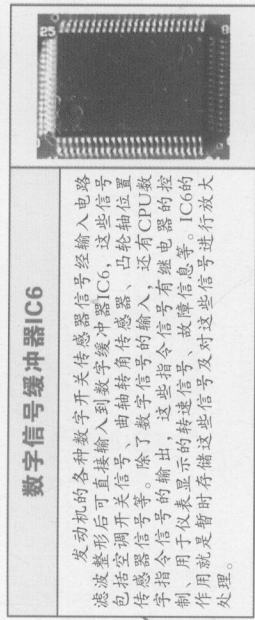 数字信号缓冲器IC6
发动机的各种数字开关传感器信号经输入电路
滤波整形后可直接输入到数字缓冲器IC6，这些信号
包括空调开关信号、曲轴转角传感器、凸轮轴位置
传感器信号等。除了数字信号的输入，还有CPU数
字指令信号的输出，这些指令信号有继电器的控
制、用于仪表显示的转速信号、故障信息等。IC6的
作用就是暂时存储这些信号及对这些信号进行放大
处理。
25